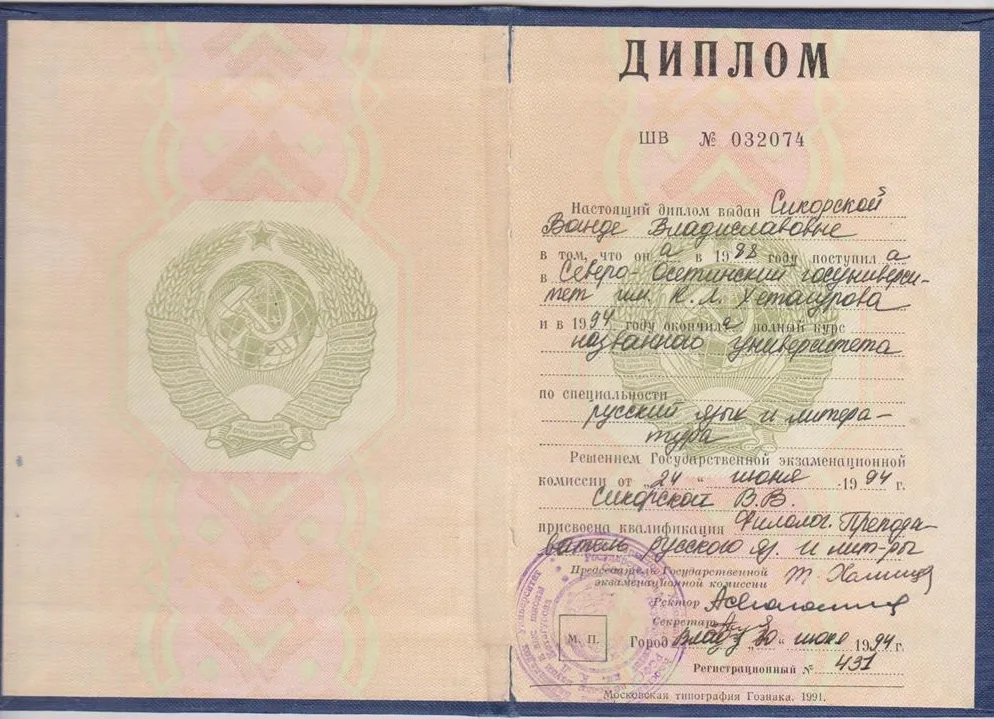 ДИПЛОМ
ШВ № 032074
Настоящий диплом выдан Сикорской
Ванде Владиславовне
в том, что он а в 1988 году поступил а
в Северо-Осетинский госуниверси-
тет им. К.Л. Хетагурова
и в 1994 году окончила полный курс
названного университета
по специальности
русский язык и литера-
тура
Решением Государственной экзаменационной
комиссии от „24" июня 1994 г.
Сикорской В.В.
присвоена квалификация Филолог. Препода-
ватель русского яз. и лит-ры
Председатель Государственной
экзаменационной комиссии
Ректор
Секретарь
М. П.
Город Влад „30" июня 1994 г.
Регистрационный № 431
Московская типография Гознака. 1991.